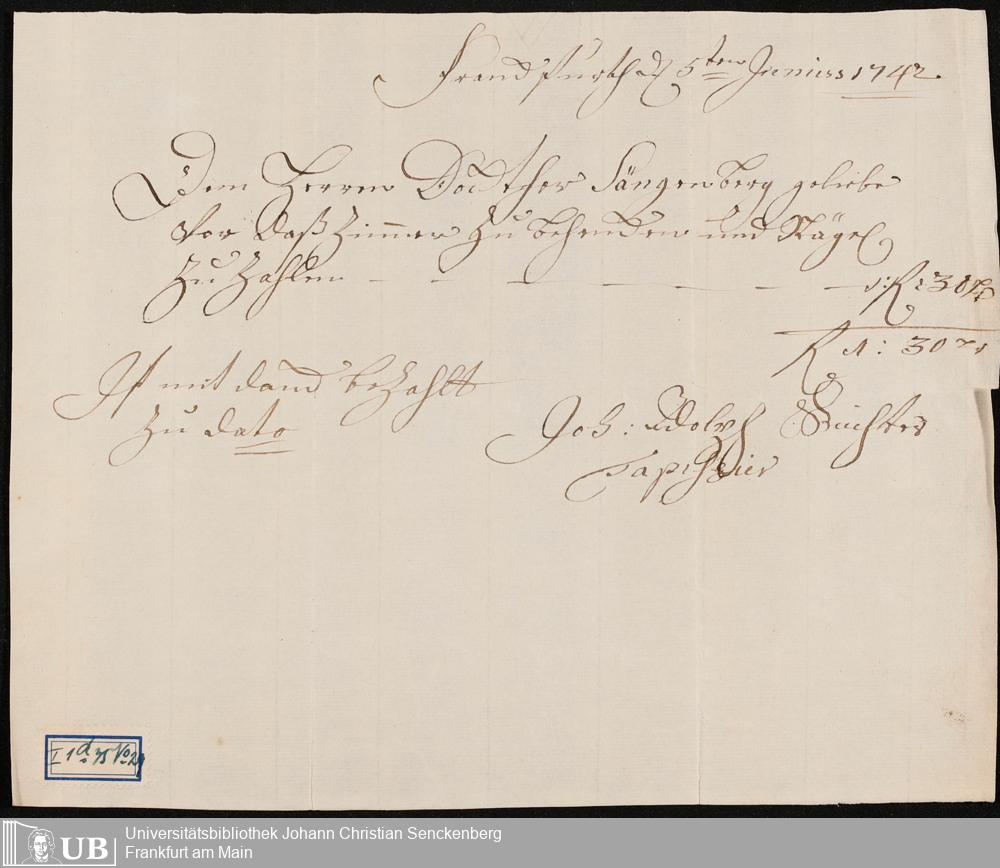 Franckfurth d 5ten Junius 1742.
Dem Herren Dockther Sängenberg geliebe
Vor daß Zimmer zu behencken und Nägel
zu Zahlen — — — — — — — 1: R: 30 xr
R 1: 30 xr
Ist mit danck bezahlt
zu dato
Joh: Adolph Richter
Tapetzier
I 1 d 75 No 29
UB
Universitätsbibliothek Johann Christian Senckenberg
Frankfurt am Main